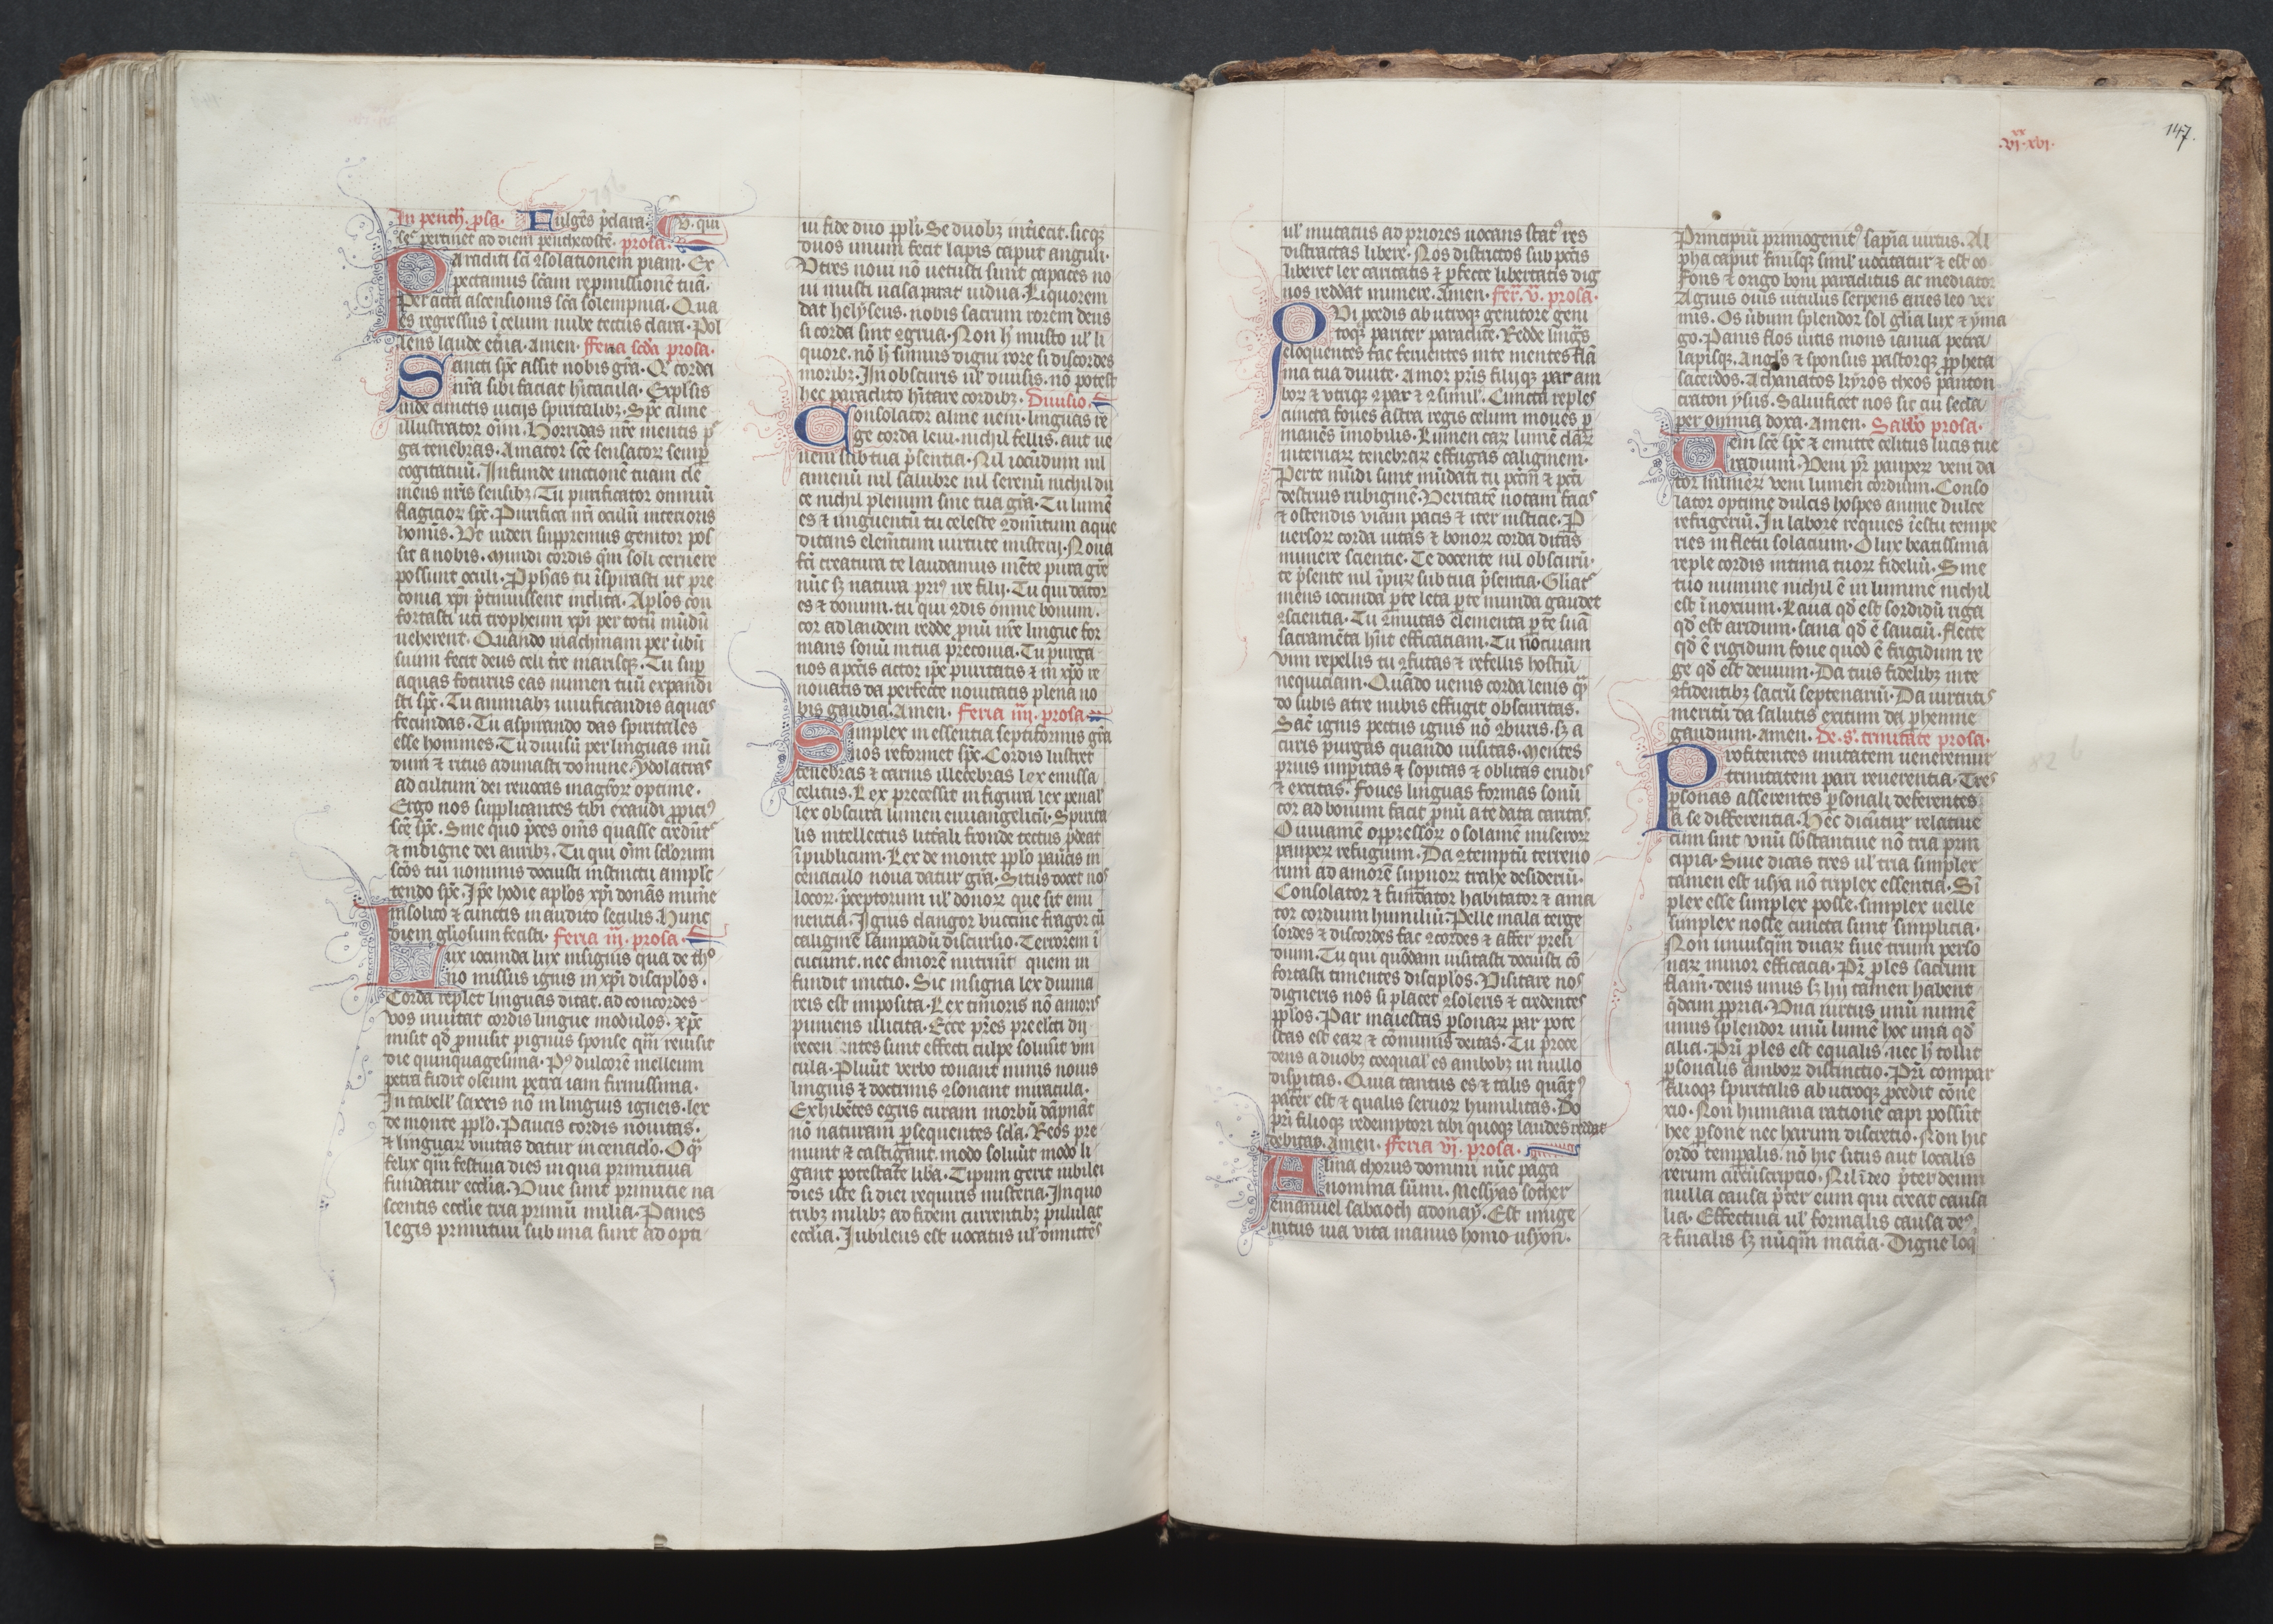 In penth. p̄sa. Fulgēs p̄clara. V. qui
le pertinet ad diem penthecostē. prosa.
Paraclitī sc̄ī ꝯsolationem piam. Ex
pectamus sc̄am repmissionē tuā.
Per acta ascensionis sc̄a solempnia. Qua
es regressus ī celum nube tectus clara. Pol
lens laude et̄na. Amen. Feria sc̄da prosa.
Sancti sp̄c assit nobis gr̄a. Q̄ corda
nr̄a sibi faciat hītacula. Expl̄sis
inde cunctis uicijs spiritalibꝫ. Sp̄c alme
illustrator oīm. Horridas nr̄e mentis pꝰ
ga tenebras. Amator sc̄e sensatoꝝ semp̄
cogitatuū. Infunde unctionē tuam cle
mens nr̄is sensibꝫ. Tu purificator omniū
flagicioꝝ sp̄c. Purifica nr̄i oculū interioris
homīs. Vt uideri suppremus genitor pos
sit a nobis. Mundi cordis qm̄ soli cernere
possunt oculi. Pphās tu īspirasti ut pre
conia xp̄i p̄cinuissent inclita. Apl̄os con
fortasti uti tropheum xp̄i per totū mūdū
ueherent. Quando machinam per ūbū
suum fecit deus celi t̄re marisqꝫ. Tu sup̄
aquas foturus eas numen tuū expandi
sti sp̄c. Tu animabꝫ uiuificandis aquas
fecundas. Tu aspirando das spiritales
esse homines. Tu diuisū per linguas mū
dum ⁊ ritus adunasti domine. ydolatras
ad cultum dei reuocas magr̄or optime.
Ergo nos supplicantes tibi exaudi ppiciꝰ
sc̄e sp̄c. Sine quo p̄ces om̄s quasse credūt̄
⁊ indigne dei auribꝫ. Tu qui oīm sc̄lorum
sc̄os tui nominis docuisti instinctu ample
tendo sp̄c. Ip̄e hodie apl̄os xp̄i donās mune
insolito ⁊ cunctis inaudito seculis. Hunc
diem gl̄iosum fecisti. Feria iij. prosa.
Lux iocunda lux insignis qua de thͦ
no missus ignis in xp̄i discip̄los.
Corda replet linguas ditat. ad concordes
vos inuitat cordis lingue modulos. xp̄c
misit qd̄ pmisit pignus sponse qm̄ reuisit
die quinquagesima. Pꝰ dulcorē melleum
petra fudit oleum petra iam firmissima.
In tabell̄ saxeis nō in linguis igneis. lex
de monte ppl̄o. Paucis cordis nouitas.
⁊ linguaꝝ vnitas datur in cenacl̄o. O q̄
felix qm̄ festiua dies in qua primitiua
fundatur eccl̄ia. Viue sunt primicie na
scentis eccl̄ie tria primū milia. Panes
legis primitiui sub una sunt adopti
ui fide duo ppl̄i. Se duobꝫ int̄iecit. sicqꝫ
duos unum fecit lapis caput anguli.
Vtres noui nō uetusti sunt capaces no
ui musti uasa parat uidua. Liquorem
dat helyseus. nobis sacrum rorem deus
si corda sint ꝯgrua. Non h̄ musto ul̄ li
quore. nō h̄ sumus digni rore si discordes
moribꝫ. In obscuris ul̄ diuisis. nō potest
hec paraclito hītare cordibꝫ. Diuisio.
Consolator alme ueni. linguas re
ge corda leni. nichil fellis. aut ue
neni sub tua p̄sentia. Nil iocūdum nil
amenū nil salubre nil serenū nichil du
ce nichil plenum sine tua gr̄a. Tu lumē
es ⁊ unguentū tu celeste ꝯdimt̄um aque
ditans elemt̄um uirtute misterij. Noua
fc̄i creatura te laudamus mēte pura gr̄e
nūc sꝫ natura priꝰ ire filij. Tu qui dator
es ⁊ donum. tu qui ꝯdis omne bonum.
cor ad laudem redde pnū nr̄e lingue for
mans sonū in tua preconia. Tu purga
nos a pcc̄is actor ip̄e puritatis ⁊ in xp̄o re
nouatis da perfecte nouitatis plena no
bis gaudia. Amen. Feria iiij. prosa.
Simplex in essentia septiformis gr̄a
nos reformet sp̄c. Cordis lustret
tenebras ⁊ carnis illecebras lex emissa
celitus. Lex precessit in figura lex penal̄
lex obscura lumen euuangelicū. Spirita
lis intellectus litt̄ali fronde tectus pdeat
ī publicum. Lex de monte pplo paucis in
cenaculo noua datur gr̄a. Situs docet nos
locoꝝ. p̄ceptorum ul̄ donoꝝ que sit emi
nentia. Ignis clangor buccine fragor cū
caligine lampadū discursio. Terrorem ī
cuciunt. nec amorē nutriūt quem in
fundit unctio. Sic insigna lex diuina
reis est imposita. Lex timoris nō amoris
puniens illicita. Ecce p̄res pre elc̄ti dij
recen entes sunt effecti culpe soluūt vin
cula. Pluūt verbo tonant minis nouis
linguis ⁊ doctrinis ꝯsonant miracula.
Exhibētes egris curam morbū dāpnāt
nō naturam p̄sequentes scl̄a. Reos pre
munt ⁊ castigant. modo soluūt modo li
gant potestate lib̄a. Tipum gerit iubilei
dies iste si diei requiris misteria. In quo
tribꝫ milibꝫ ad fidem currentibꝫ pululat
eccl̄ia. Iubileus est uocatus ul̄ dimittēs
ul̄ mutatus ad priores uocans statꝰ res
distractas libere. Nos districtos sub pcc̄is
liberet lex caritatis ⁊ p̄fecte libertatis dig
nos reddat munere. Amen. fer̄. v̄. prosa.
QVi pcedis ab utroqꝫ genitore geni
toqꝫ pariter paraclite. Redde lingꝰs
eloquentes fac feruentes in te mentes flā
ma tua diuite. Amor pr̄is filijqꝫ par am
boꝝ ⁊ utriqꝫ ꝯpar ⁊ ꝯsimil̄. Cuncta reples
cuncta foues astra regis celum moues p̄
manēs īmobilis. Lumen caꝝ lumē claꝝ
internaꝝ tenebraꝝ effugas caliginem.
Per te mūdi sunt mūdati tu pcc̄m ⁊ pcc̄i
destruis rubiginē. Veritatē notam facis
⁊ ostendis viam pacis ⁊ iter iusticie. P
uersoꝝ corda uitas ⁊ bonoꝝ corda ditas
munere scientie. Te docente nil obscurū.
te p̄sente nil īpuꝝ sub tua p̄sentia. Gliat̄
mens iocunda p te leta p te munda gaudet
ꝯscientia. Tu ꝯmutas elementa p te suā
sacramēta hn̄t efficaciam. Tu nociuam
vim repellis tu ꝯfutas ⁊ refellis hostiū
nequiciam. Quādo uenis corda lenis q̄n
do subis atre nubis effugit obscuritas.
Sac̄ ignis pectus ignis nō ꝯburis. sꝫ a
curis purgas quando uisitas. Mentes
prius imp̄itas ⁊ sopitas ⁊ oblitas erudis
⁊ excitas. Foues linguas formas sonū
cor ad bonum facit pnū a te data caritas.
O iuuamē oppressoꝝ o solamē miseroꝝ
paupeꝝ refugium. Da ꝯtemptū terreno
rum ad amorē supnoꝝ trahe desideriū.
Consolator ⁊ fundator habitator ⁊ ama
tor cordium humiliū. Pelle mala terge
sordes ⁊ discordes fac ꝯcordes ⁊ affer presi
dium. Tu qui quōdam uisitasti docuisti cō
fortasti timentes discip̄los. Visitare nos
digneris nos si placet ꝯsoleris ⁊ credentes
pplos. Par maiestas p̄sonaꝝ par pote
stas est eaꝝ ⁊ cōmunis deitas. Tu proce
dens a duobꝫ coequal̄ es ambobꝫ in nullo
disparitas. Quia tantus es ⁊ talis quātꝰ
pater est ⁊ qualis seruoꝝ humilitas. Do
pr̄i filioqꝫ redemptori tibi quoqꝫ laudes reddat
debitas. Amen. Feria vj. prosa.
Alma chorus domini nūc paga
nomina sūmi. Messyas sother
emanuel sabaoth adonay. Est unige
nitus uia vita manus homo usyon.
.vj.xx xvj. 147.
Principiū primogenitꝰ sapīa uirtus. Al
pha caput finisqꝫ simul̄ uocitatur ⁊ est oo
Fons ⁊ origo boni paraclitus ac mediator
Agnus ouis uitulus serpens aries leo ver
mis. Os ūbum splendor sol glīa lux ⁊ yma
go. Panis flos uitis mons ianua petra
lapisqꝫ. Angl̄s ⁊ sponsus pastorqꝫ ppheta
sacerdos. Athanatos kyros theos panton
craton ysus. Saluificet nos sit cui secla
per omnia doxa. Amen. Sabb̄o prosa.
Veni sc̄e sp̄c ⁊ emitte celitus lucis tue
radium. Veni pr̄ paupeꝝ veni da
tor muneꝝ veni lumen cordium. Conso
lator optime dulcis hospes anime dulce
refrigeriū. In labore requies ī estu tempe
ries in fletū solacium. O lux beatissima
reple cordis intima tuoꝝ fideliū. Sine
tuo numine nichil ē in lumine nichil
est īnoxium. Laua qd̄ est sordidū riga
qd̄ est aridum. sana qd̄ ē sauciū. flecte
qd̄ ē rigidum foue quod ē frigidum re
ge qd̄ est deuium. Da tuis fidelibꝫ in te
ꝯfidentibꝫ sacrū septenariū. Da uirtutis
meritū da salutis exitum da phenne
gaudium. Amen. De. s. trinitate prosa.
Profitentes unitatem ueneremur
trinitatem pari reuerentia. Tres
p̄sonas asserentes p̄sonali deferentes
a se differentia. Hec dicūtur relatiue
cum sint vnū sb̄stantiue nō tria prin
cipia. Siue dicas tres ul̄ tria simplex
tamen est usya nō triplex essentia. Sī
plex esse simplex posse. simplex uelle
simplex nosse cuncta sunt simplicia.
Non uniusqm̄ duaꝝ siue trium perso
naꝝ minor efficacia. Pr̄ ples sacrum
flam̄. deus unus sꝫ hij tamen habent
q̄dam ppria. Vna uirtus unū numē
unus splendor unū lumē hoc una qd̄
alia. Pr̄i ples est equalis. nec h̄ tollit
p̄sonalis amboꝝ distinctio. Pr̄i compar
filioqꝫ spiritalis ab utroqꝫ pcedit cōne
xio. Non humana ratione capi possūt
hee p̄sone nec harum discretio. Non hic
ordo tempalis. nō hic situs aut localis
rerum circūscriptio. Nil ī deo p̄ter deum
nulla causa p̄ter eum qui creat causa
lia. Effectiua ul̄ formalis causa deꝰ.
⁊ finalis sꝫ nūqm̄ mat̄ia. Digne loqi